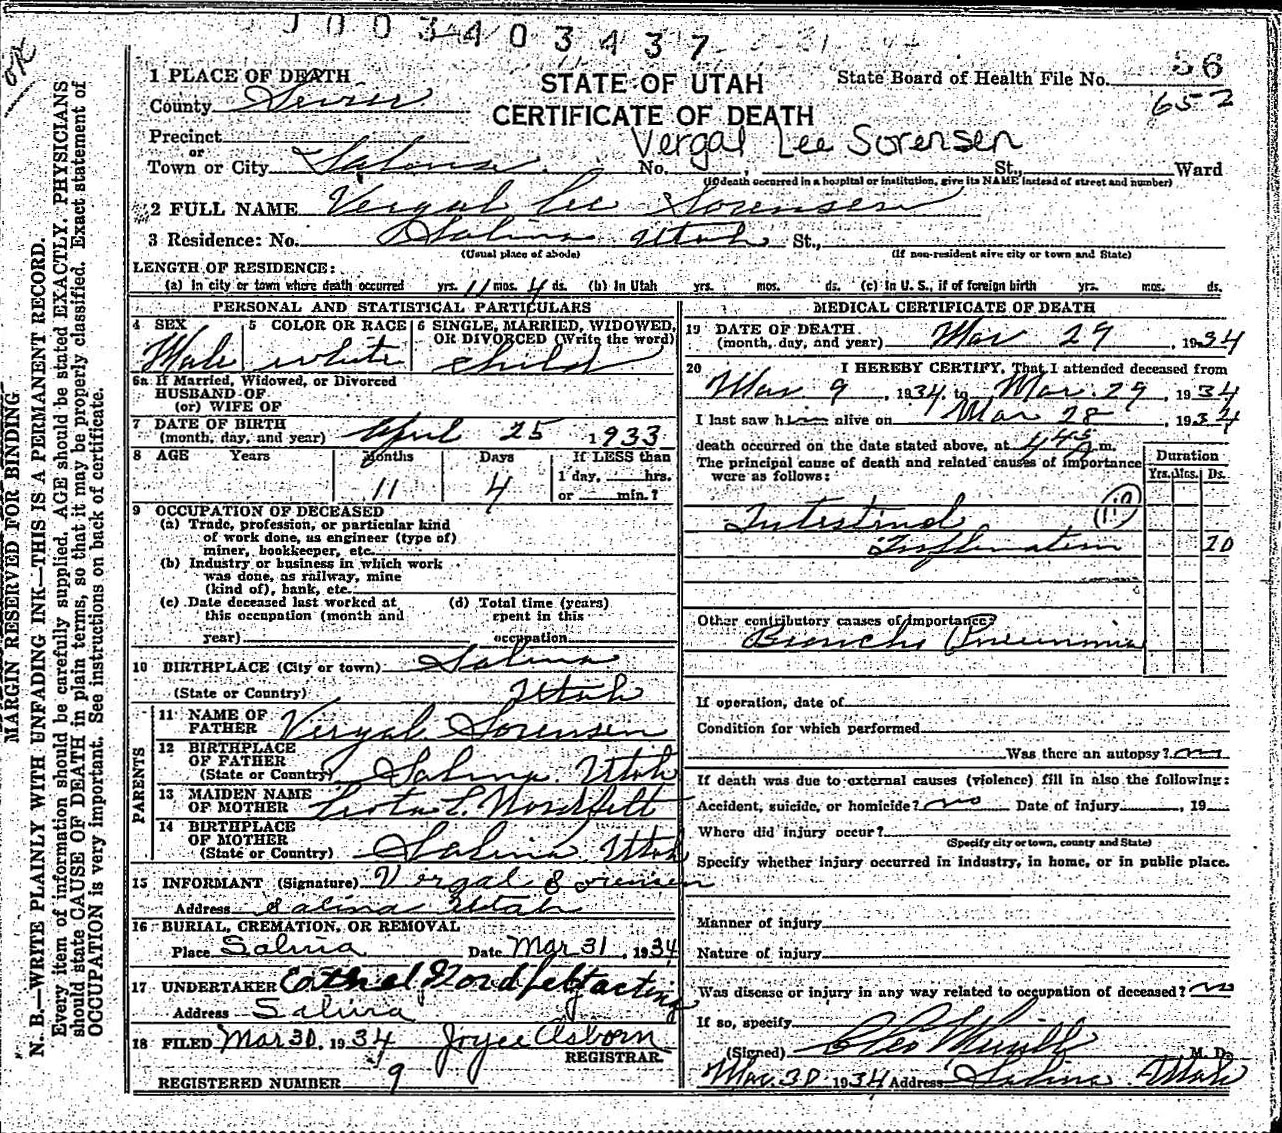 OK
J 0 0 3 4 4 0 3 4 3 7
MARGIN RESERVED FOR BINDING
N. B.—WRITE PLAINLY WITH UNFADING INK—THIS IS A PERMANENT RECORD.
Every item of information should be carefully supplied. AGE should be stated EXACTLY. PHYSICIANS
should state CAUSE OF DEATH in plain terms, so that it may be properly classified. Exact statement of
OCCUPATION is very important. See instructions on back of certificate.
STATE OF UTAH
CERTIFICATE OF DEATH
State Board of Health File No. 56
652
Vergal Lee Sorensen
1 PLACE OF DEATH
County Sevier
Precinct
or
Town or City Salina No. , St., Ward
(If death occurred in a hospital or institution, give its NAME instead of street and number)
2 FULL NAME Vergal Lee Sorensen
3 Residence: No. Salina Utah St.,
(Usual place of abode) (If non-resident give city or town and State)
LENGTH OF RESIDENCE:
(a) In city or town where death occurred yrs. 11 mos. 4 ds. (b) In Utah yrs. mos. ds. (c) In U. S., if of foreign birth yrs. mos. ds.
PERSONAL AND STATISTICAL PARTICULARS
4 SEX Male
5 COLOR OR RACE white
6 SINGLE, MARRIED, WIDOWED,
OR DIVORCED (Write the word) child
6a If Married, Widowed, or Divorced
HUSBAND OF
(or) WIFE OF
7 DATE OF BIRTH
(month, day, and year) April 25 1933
8 AGE Years Months Days If LESS than
11 4 1 day, hrs.
or min.?
9 OCCUPATION OF DECEASED
(a) Trade, profession, or particular kind
of work done, as engineer (type of)
miner, bookkeeper, etc.
(b) Industry or business in which work
was done, as railway, mine
(kind of), bank, etc.
(c) Date deceased last worked at (d) Total time (years)
this occupation (month and spent in this
year) occupation
10 BIRTHPLACE (City or town) Salina
(State or Country) Utah
PARENTS
11 NAME OF
FATHER Vergal Sorensen
12 BIRTHPLACE
OF FATHER
(State or Country) Salina Utah
13 MAIDEN NAME
OF MOTHER Leota L. Nordfelt
14 BIRTHPLACE
OF MOTHER
(State or Country) Salina, Utah
15 INFORMANT (Signature) Vergal Sorensen
Address Salina Utah
16 BURIAL, CREMATION, OR REMOVAL
Place Salina Date Mar 31, 1934
17 UNDERTAKER Nordfelt acting
Address Salina
18 FILED Mar 30, 1934 Joyce Osborn
REGISTRAR
REGISTERED NUMBER 9
MEDICAL CERTIFICATE OF DEATH
19 DATE OF DEATH
(month, day, and year) Mar 29, 1934
20 I HEREBY CERTIFY, That I attended deceased from
Mar 9, 1934, to Mar. 29, 1934
I last saw him alive on Mar 28, 1934
death occurred on the date stated above, at 4 45 m.
The principal cause of death and related causes of importance
were as follows:
Duration
Yrs. Mos. Ds.
Intestinal 119
Inflamation 20
Other contributory causes of importance?
Broncho Pneumonia
If operation, date of
Condition for which performed
Was there an autopsy? no
If death was due to external causes (violence) fill in also the following:
Accident, suicide, or homicide? no Date of injury , 19
Where did injury occur?
(Specify city or town, county and State)
Specify whether injury occurred in industry, in home, or in public place.
Manner of injury
Nature of injury
Was disease or injury in any way related to occupation of deceased? no
If so, specify
(Signed) M. D.
Mar. 30, 1934 Address Salina Utah